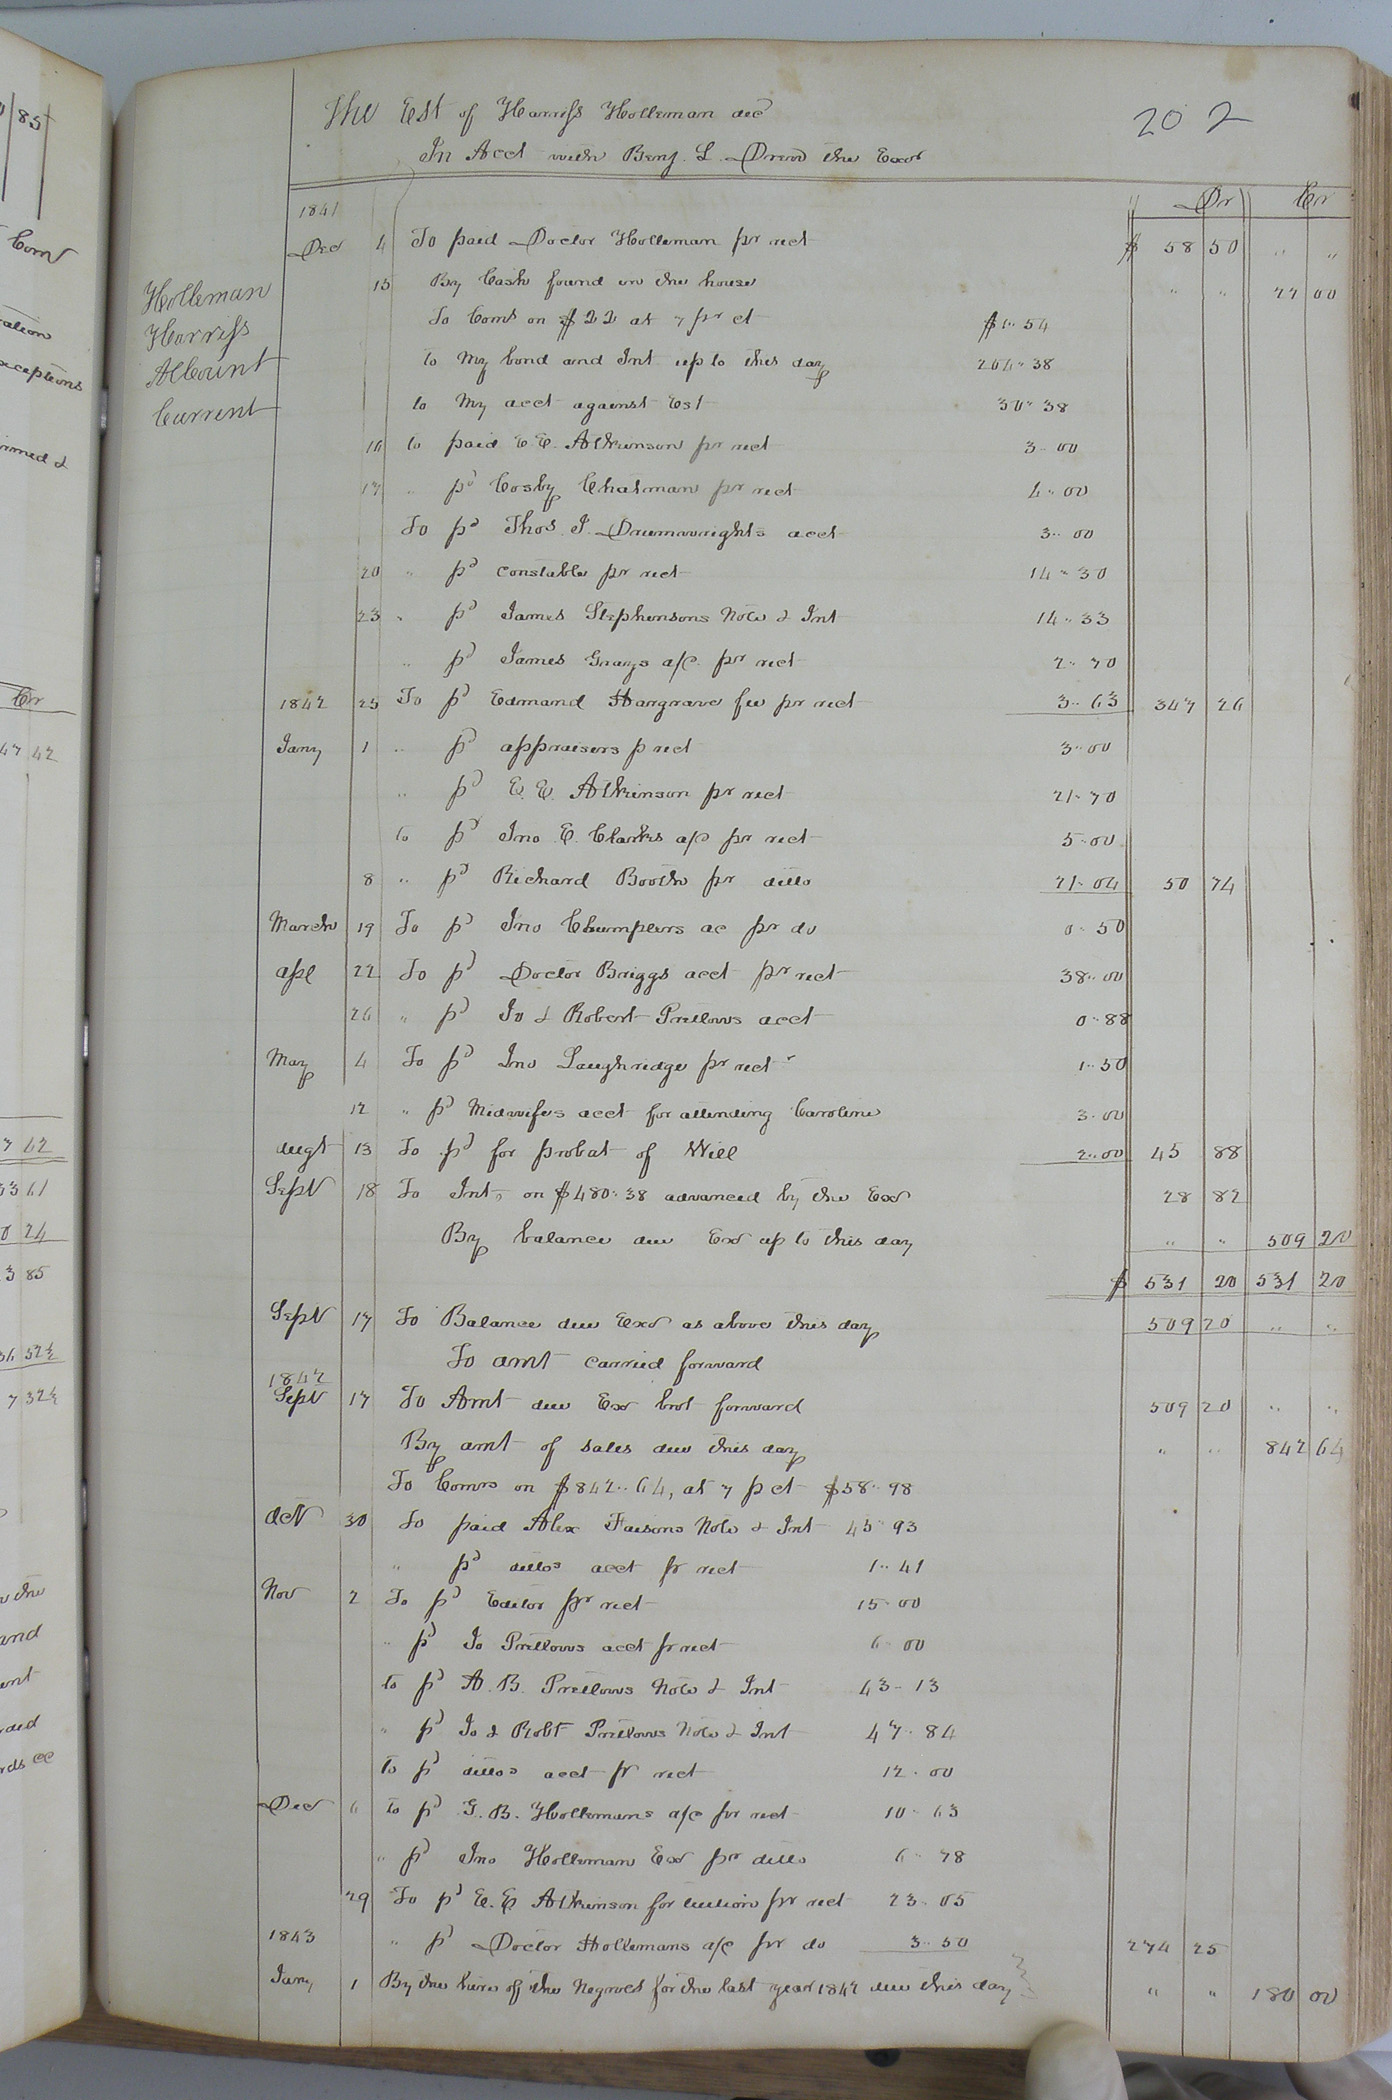 85
Corn
ceptions
rmed &
Cr
47 42
7 62
3361
0 24
3 85
36 32½
7 32½
and
ent
The Est of Harriss Holleman decd
202
In Acct with Benj. L. Drew the Exor
Dr Cr
1841
Dec 4 To paid Doctor Holleman pr rect $ 58 50 " "
15 By Cash found in the house " " 22 00
To Coms on $22 at 7 pr ct $1.. 54
to My bond and Int up to this day 264.. 38
to My acct against Est 30.. 38
16 to paid E E. Atkinson pr rect 3.. 00
17 " pd Cosby Chatman pr rect 4.. 00
To pd Thos. J. Drumwrights acct 3.. 00
20 " pd constable pr rect 14.. 30
23 " pd James Stephensons Note & Int 14.. 33
" pd James Grays a/c pr rect 2.. 70
1842 25 To pd Edmand Hargrave fee pr rect 3.. 63 347 26
Jany 1 " pd appraisers p rect 3.. 00
" pd E. E. Atkinson pr rect 21.. 70
to pd Jno E. Clarkes a/c pr rect 5.. 00
8 " pd Richard Booth pr ditto 21.. 04 50 74
March 19 To pd Jno Champlers ac pr do 0.. 50
apl 22 To pd Doctor Briggs acct pr rect 38.. 00
26 " pd Jo & Robert Pretlows acct 0.. 88
May 4 To pd Jno Laughridge pr rect 1.. 50
12 " pd Midwifes acct for attending Caroline 3.. 00
augt 13 To pd for probat of Will 2.. 00 45 88
Sept 18 To Int on $480.. 38 advanced by the Exor 28 82
By balance due Exor up to this day " " 509 20
$ 531 20 531 20
Sept 17 To Balance due Exor as above this day 509 20 " "
To amt carried forward
1842
Sept 17 To Amt due Exor brot forward 509 20 " "
By amt of sales due this day " " 842 64
To Coms on $842.. 64, at 7 p ct $58.. 98
Oct 30 To paid Alex Faisons Note & Int 45.. 93
" pd dittos acct pr rect 1.. 41
Nov 2 To pd Editor pr rect 15.. 00
" pd Jo Pretlows acct pr rect 6.. 00
to pd A. B. Pretlows Note & Int 43.. 13
" pd Jo & Robt Pretlows Note & Int 47.. 84
to pd dittos acct pr rect 12.. 00
Dec 6 to pd G. B. Hollemans a/c pr rect 10.. 63
" pd Jno Holleman Exor pr ditto 6.. 78
29 To pd E. E. Atkinson for tuition pr rect 23.. 05
1843 " pd Doctor Hollemans a/c pr do 3.. 50 274 25
Jany 1 By the hire of the Negroes for the last year 1842 due this day " " 180 00
Holleman
Harriss
Account
Current